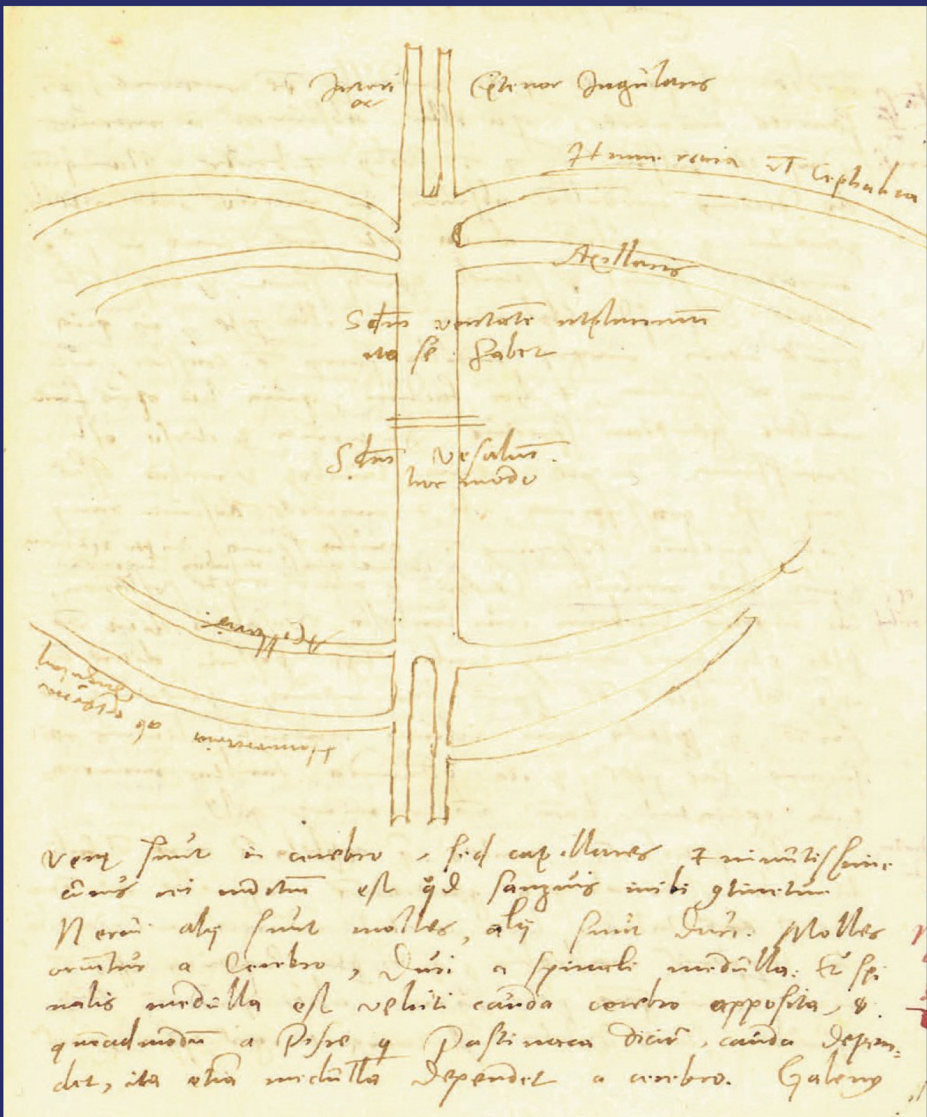 Interior Exterior Jugularis
Humeraria vel Cephalica
Axillaris
Scdm veritatē utplurimum
ita se habet
Scdm Vesaliū
hoc modo
Axillaris
Humeraria
Venę sunt in cerebro, sed capillares & minutissimę
cuius rei indictum est qd sanguis inibi 9tinetur
Nerui alij sunt molles, alij sunt duri. Molles
oriuntur a Cerebro, Duri a spinali medulla: Et spi
nalis medulla est veluti cauda cerebro apposita, &
quēadmodū a Pisce q Pastinaca dicit, cauda depen=
det, ita etiā medulla dependet a cerebro. Galenus